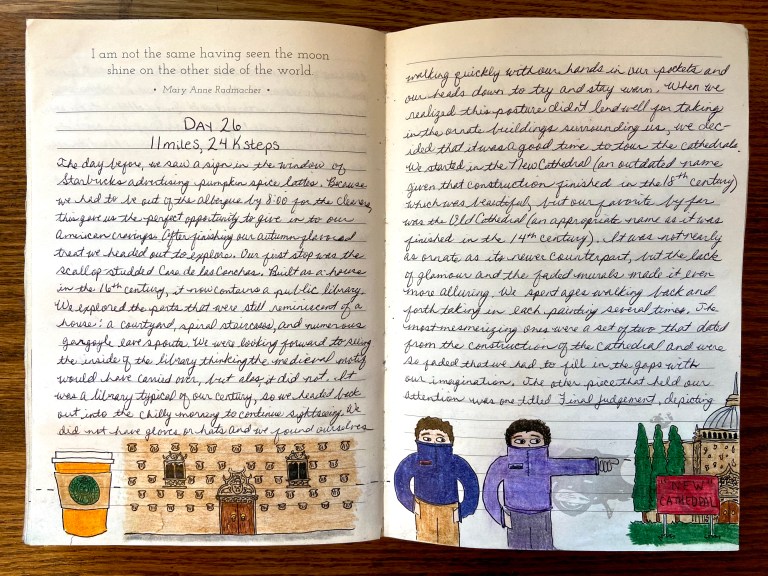 I am not the same having seen the moon
shine on the other side of the world.
• Mary Anne Radmacher •
DAY 26
11 miles, 24K steps
The day before, we saw a sign in the window of
Starbucks advertising pumpkin spice lattes. Because
we had to be out of the albergue by 8:00 for the cleaners,
this gave us the perfect opportunity to give in to our
American cravings. After finishing our autumn flavored
treat we headed out to explore. Our first stop was the
scallop studded Casa de las Conchas. Built as a house
in the 16th century, it now contains a public library.
We explored the parts that were still reminiscent of a
house: a courtyard, spiral staircases, and numerous
gargoyle eave spouts. We were looking forward to seeing
the inside of the library thinking the medieval motif
would have carried over, but alas, it did not. It
was a library typical of our century, so we headed back
out into the chilly morning to continue sightseeing. We
did not have gloves or hats and we found ourselves
walking quickly with our hands in our pockets and
our heads down to try and stay warm. When we
realized this posture didn't lend well for taking
in the ornate buildings surrounding us, we dec-
ided that it was a good time to tour the cathedrals.
We started in the New Cathedral (an outdated name
given that construction finished in the 18th century)
which was beautiful, but our favorite by far
was the Old Cathedral (an appropriate name as it was
finished in the 14th century). It was not nearly
as ornate as its newer counterpart, but the lack
of glamour and the faded murals made it even
more alluring. We spent ages walking back and
forth taking in each painting several times. The
most mesmerizing ones were a set of two that dated
from the construction of the cathedral and were
so faded that we had to fill in the gaps with
our imagination. The other piece that held our
attention was one titled Final Judgement, depicting
NEW
CATHEDRAL